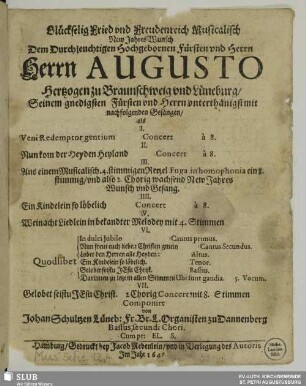 Glückselig Fried und Freudenreich Musicalisch
New Jahres Wunsch
Dem Durchleuchtigen Hochgebornen Fürsten und Herrn
Herrn AUGUSTO
Hertzogen zu Braunschweig und Lüneburg/
Seinem gnedigsten Fürsten und Herrn unterthänigst mit
nachfolgenden Gesängen/
als
I.
Veni Redemptor gentium Concert à 8.
II.
Nun kom der Heyden Heyland Concert à 8.
III.
Aus einem Musicalisch. 4. stimmigen Retzel Fuga in homophonia ein 8.
stimmig/ und also 2. Chorig wachsend New Jahres
Wunsch und Gesang.
IIII.
Ein Kindelein so löbelich Concert à 8.
V.
Weinacht Liedlein in bekandter Melodey mit 4. Stimmen
VI.
Quodlibet
In dulci Jubilo Cantus primus.
Nun frewt euch liebe Christen gmein Cantus Secundus.
Lobet den Herren alle Heyden: Altus.
Ein Kindelein so löbelich. Tenor.
Gelobet seistu JEsu Christ. Bassus.
5. Vocum.
VII.
Gelobet seistu JEsu Christ. 2 Chorig Concert mit 8. Stimmen
Componirt
von
Johann Schultzen Lüneb: Fr. Br. L. Organisten zu Dannenberg
Bassus Secundi Chori.
Cum pr: El. S.
Hamburg/ Gedruckt bey Jacob Rebenlein/ und in Verlegung des Autoris
Im Jahr
EV.-AUTH. KIRCHENGEMEINDE
ST. PETRI-MARIEN